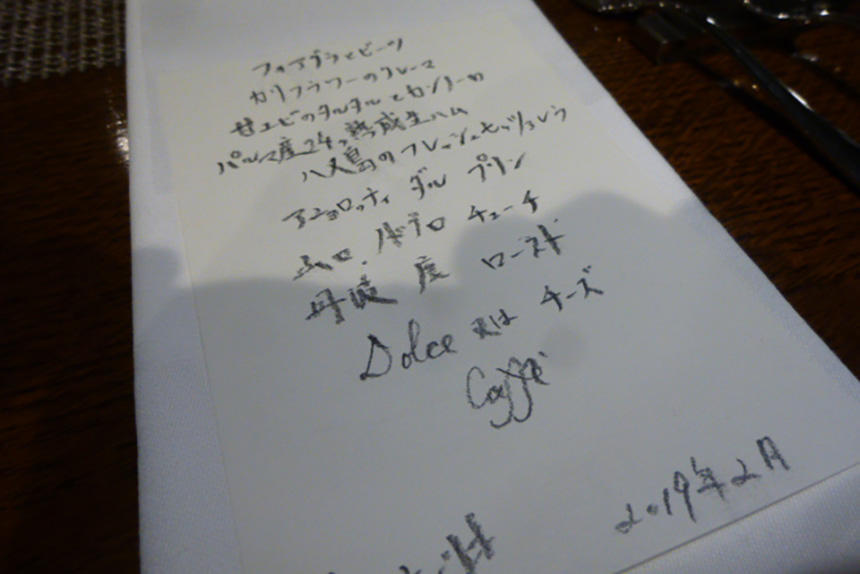 フォアグラとビーツ
カリフラワーのフレーマ
甘エビのタルタルとカンノーロ
パルマ産24ヶ熟成生ハム
八丈島のフレッシュモッツァレラ
アニョロッティ ダル プリン
ドブロ チェーチ
丹波 鹿 ロースト
Dolce 又は チーズ
Caffè
2019年2月